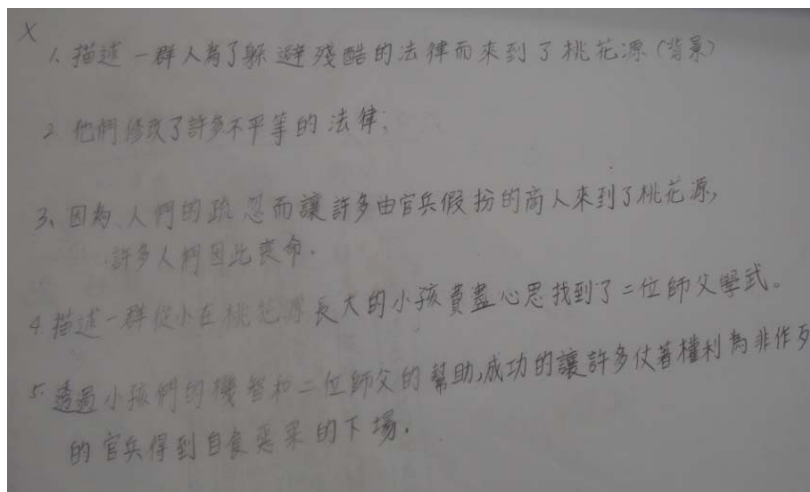 X
1、描述一群人為了躲避殘酷的法律而來到了桃花源(背景)
2 他們修改了許多不平等的法律;
3、因為人們的疏忽而讓許多由官兵假扮的商人來到了桃花源,
許多人們因此喪命.
4.描述一群從小在桃花源長大的小孩費盡心思找到了二位師父學武。
5.透過小孩們的機智和二位師父的幫助,成功的讓許多仗著權利為非作歹
的官兵得到自食惡果的下場.